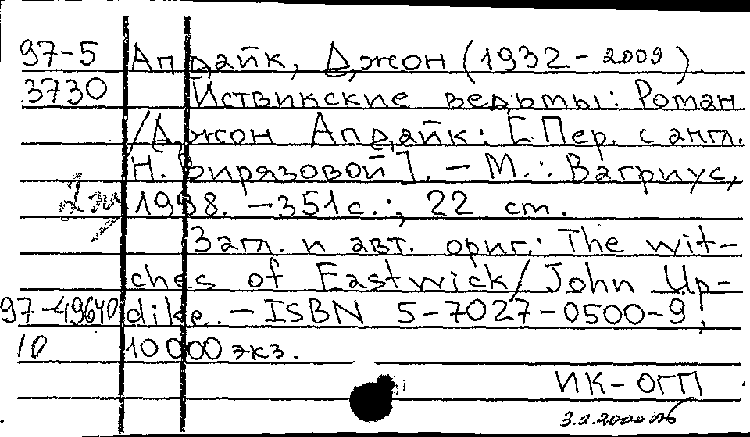 97-5 Апдайк, Джон (1932-2009)
3730 Иствикские ведьмы: Роман
/Джон Апдайк: [Пер. с англ.
Н. Вирязовой]. - М.: Вагриус,
1998. - 351 с.; 22 cm.
Загл. и авт. ориг.: The wit-
ches of Eastwick/John Up-
97-49640 dike. - ISBN 5-7027-0500-9;
10 10000 экз.
ИК-ОГП